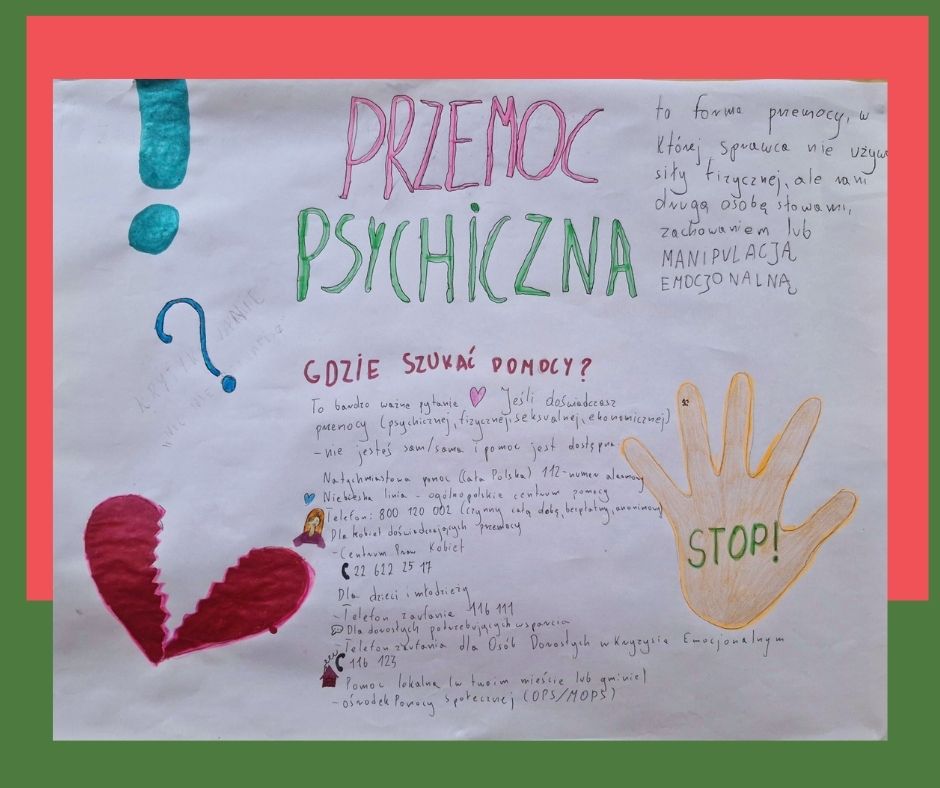 PRZEMOC
PSYCHICZNA
to forma przemocy, w
której sprawca nie używ
siły fizycznej, ale rani
drugą osobę słowami,
zachowaniem lub
MANIPULACJĄ
EMOCJONALNĄ
!
?
GDZIE SZUKAĆ POMOCY?
To bardzo ważne pytanie Jeśli doświadczasz
przemocy (psychicznej, fizycznej, seksualnej, ekonomicznej)
- nie jesteś sam/sama i pomoc jest dostępna
Natychmiastowa pomoc (cała Polska) 112-numer alarmowy
Niebieska linia - ogólnopolskie centrum pomocy
Telefon: 800 120 002 (czynny całą dobę, bezpłatny, anonimowy
Dla kobiet doświadczających przemocy
- Centrum Praw Kobiet
22 622 25 17
Dla dzieci i młodzieży
- Telefon zaufania 116 111
Dla dorosłych potrzebujących wsparcia
- Telefon zaufania dla Osób Dorosłych w Kryzysie Emocjonalnym
116 123
Pomoc lokalna (w twoim mieście lub gminie)
- ośrodek Pomocy Społecznej (OPS/MOPS)
STOP!